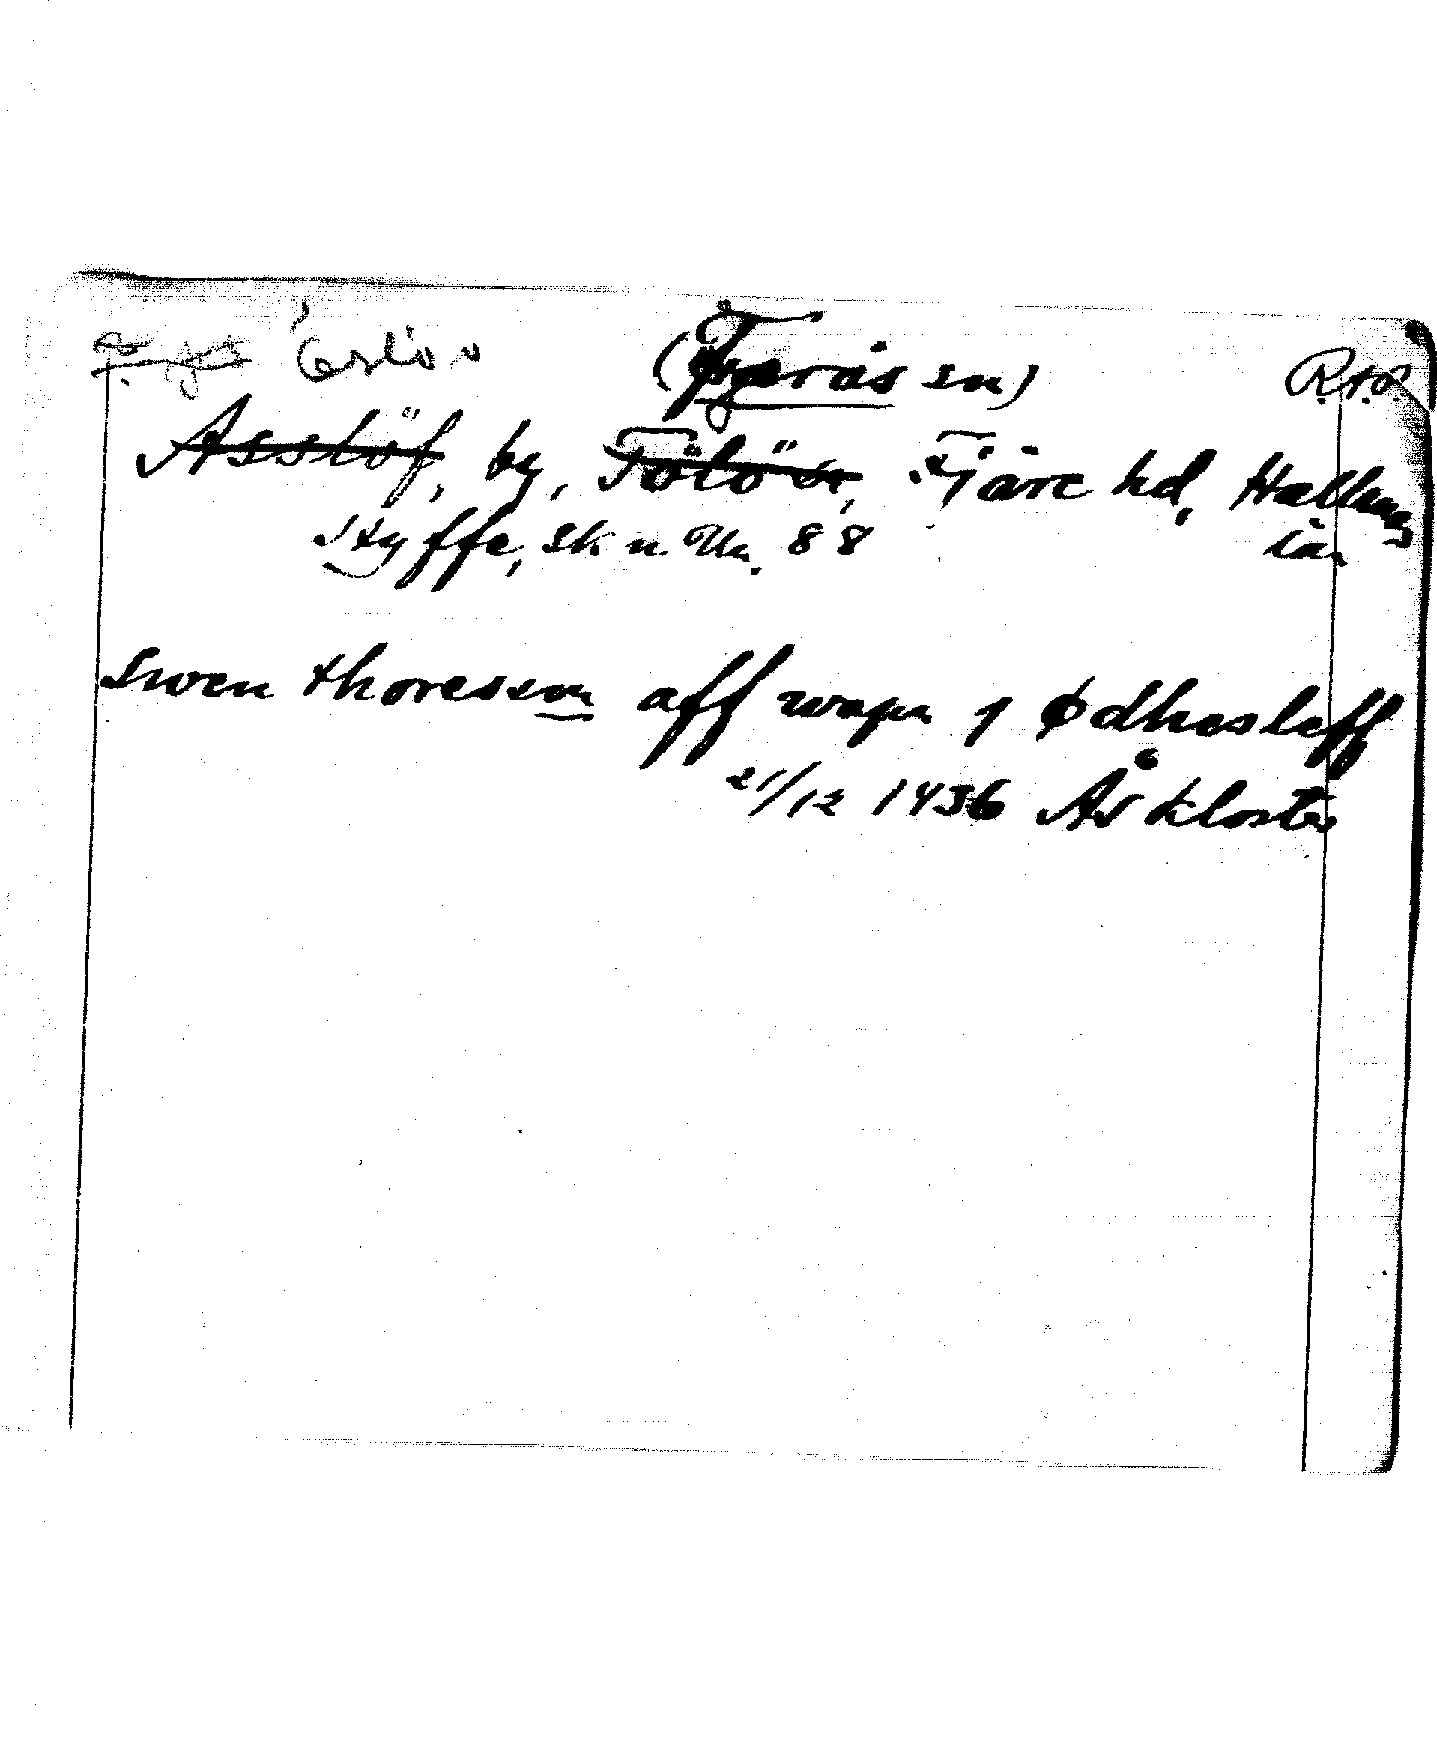 Eslöv (Fjärås sn) R.A.P.
Asslöf, by, Tölö sn, Fjäre hd, Hallands
län
Styffe, Sk. u. Un. 88
Swen thoresson aff wapn j Ødhesleff
21/12 1436 Ås kloster